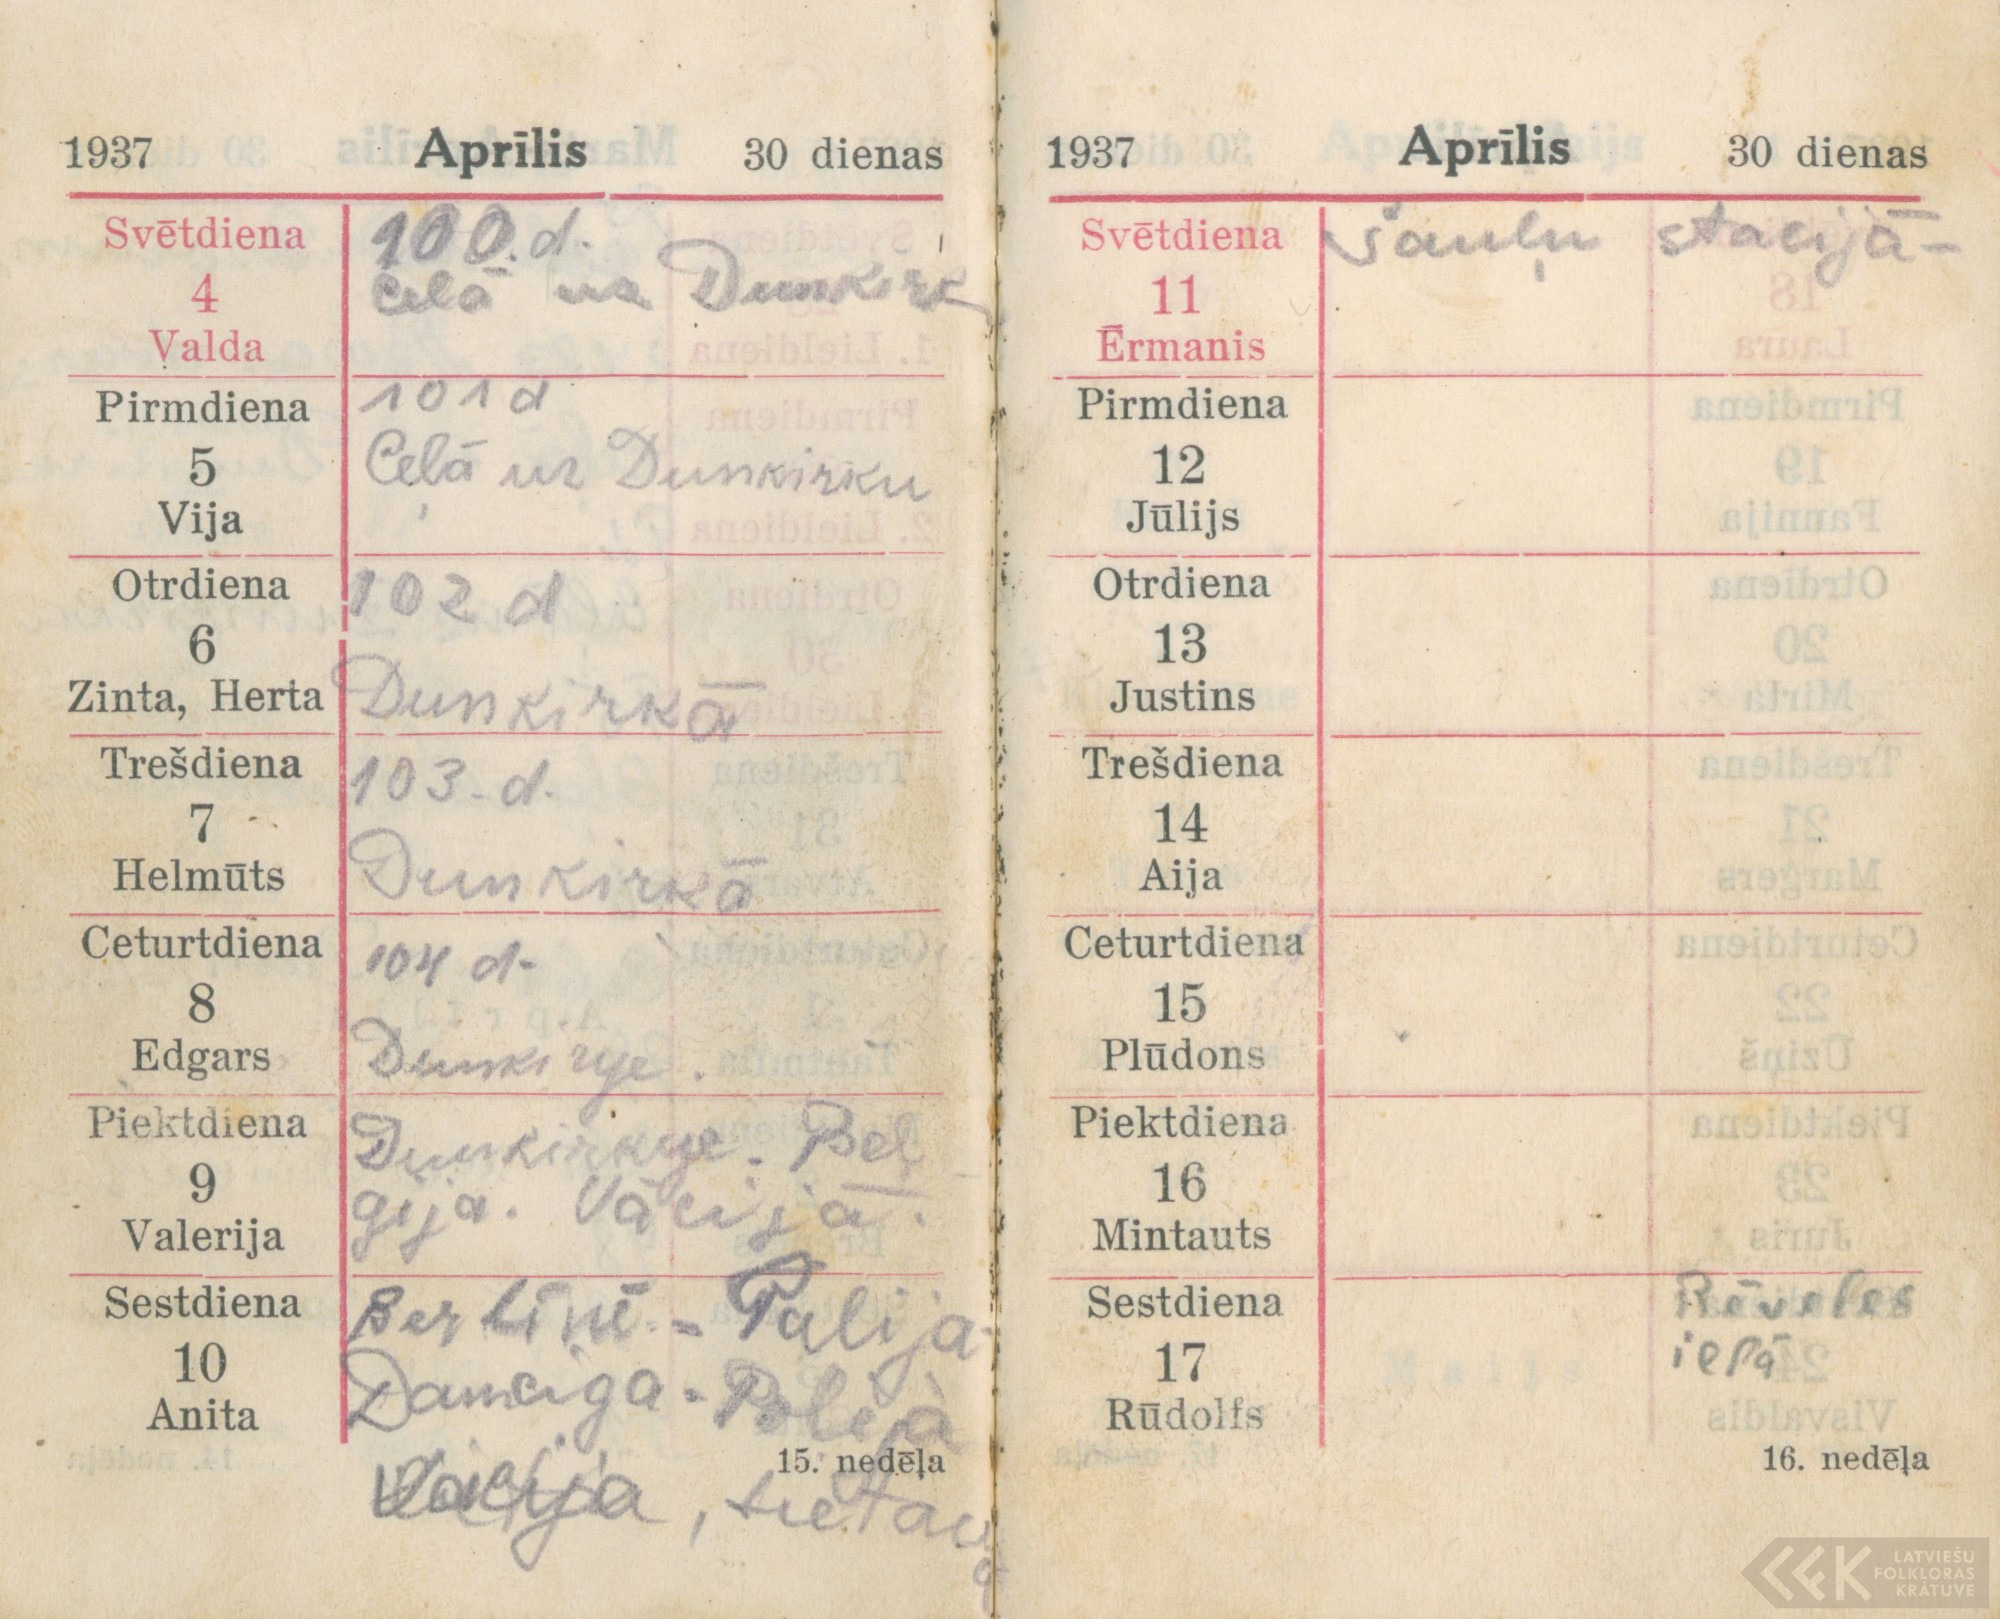 1937 Aprīlis 30 dienas
Svētdiena
4
Valda
100. d.
Ceļā uz Dunkirk
Pirmdiena
5
Vija
101 d
Ceļā uz Dunkirku
Otrdiena
6
Zinta, Herta
102 d
Dunkirkā
Trešdiena
7
Helmūts
103. d.
Dunkirkā
Ceturtdiena
8
Edgars
104 d.
Piektdiena
9
Valerija
Beļ
gija. Vācijā.
Sestdiena
10
Anita
Berlīnē. - Polija
Danciga - Polija
Vācija, Lietava
15. nedēļa
1937 Aprīlis 30 dienas
Svētdiena
11
Ērmanis
Šauļu stacijā -
Pirmdiena
12
Jūlijs
Otrdiena
13
Justins
Trešdiena
14
Aija
Ceturtdiena
15
Plūdons
Piektdiena
16
Mintauts
Sestdiena
17
Rūdolfs
Rēveles
ielā
16. nedēļa
LATVIEŠU
FOLKLORAS
KRĀTUVE